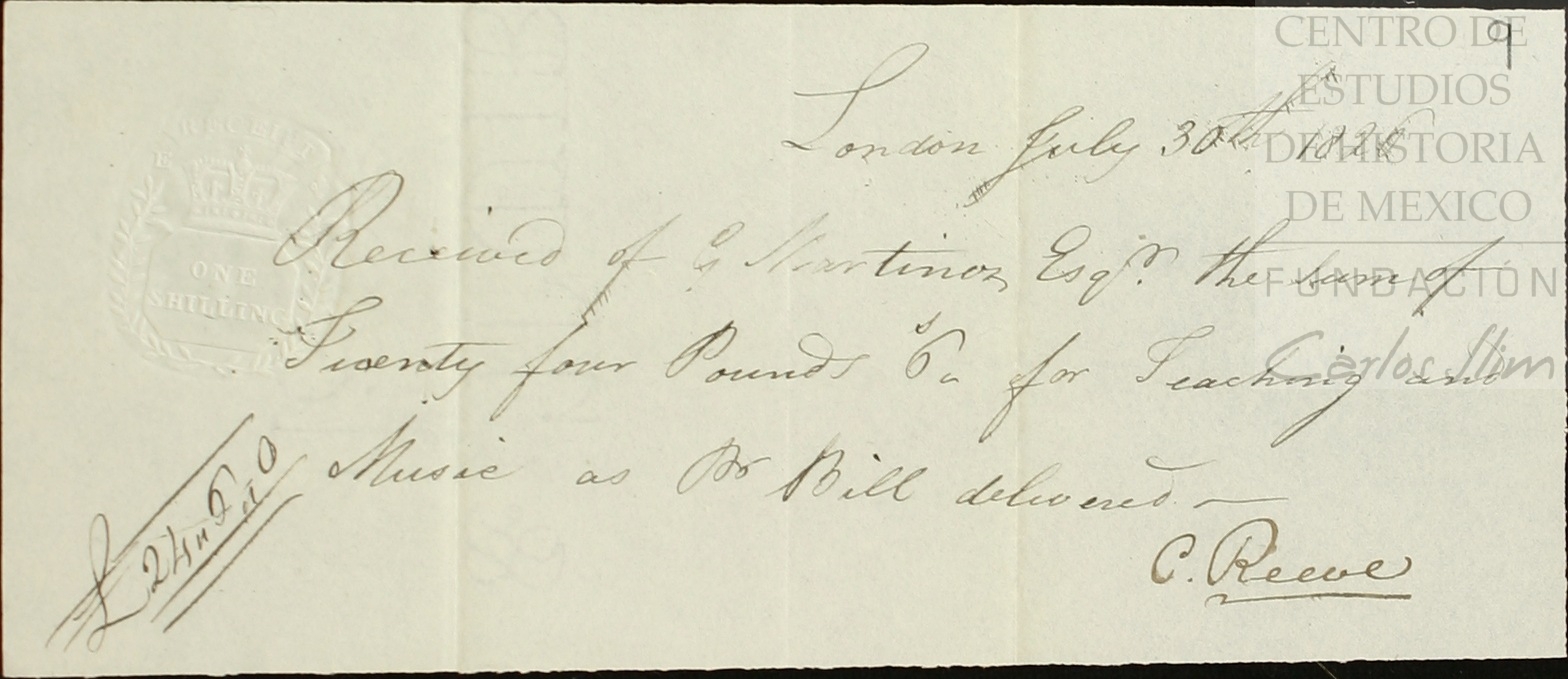 9
London July 30th 1826
RECEIPT
ONE
SHILLING
Received of G Martinez Esqr. the sum of
Twenty four Pounds 6s for Teaching and
Music as Pr Bill delivered —
£24 " 6 " 0
C. Reeve
CENTRO DE
ESTUDIOS
DE HISTORIA
DE MEXICO
FUNDACIÓN
Carlos Slim